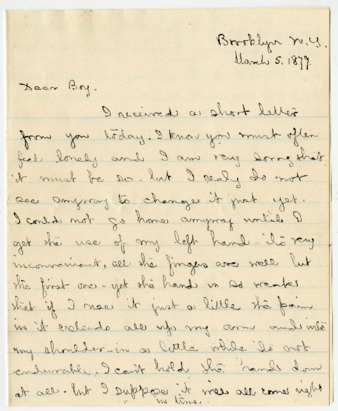 Brooklyn N.Y.
March 5. 1879.
Dear Boy.
I received a short letter
from you today. I know you must often
feel lonely and I am very sorry that
it must be so. but I realy do not
see anyway to change it just yet.
I could not go home anyway untill I
get the use of my left hand - its very
inconvenient, all the fingers are well but
the first one - yet the hand is so weak
that if I use it just a little the pain
in it extends all up my arm and into
my shoulder - in a little while its not
endurable, I can't hold the hands down
at all. but I suppose it will all come right
in time.